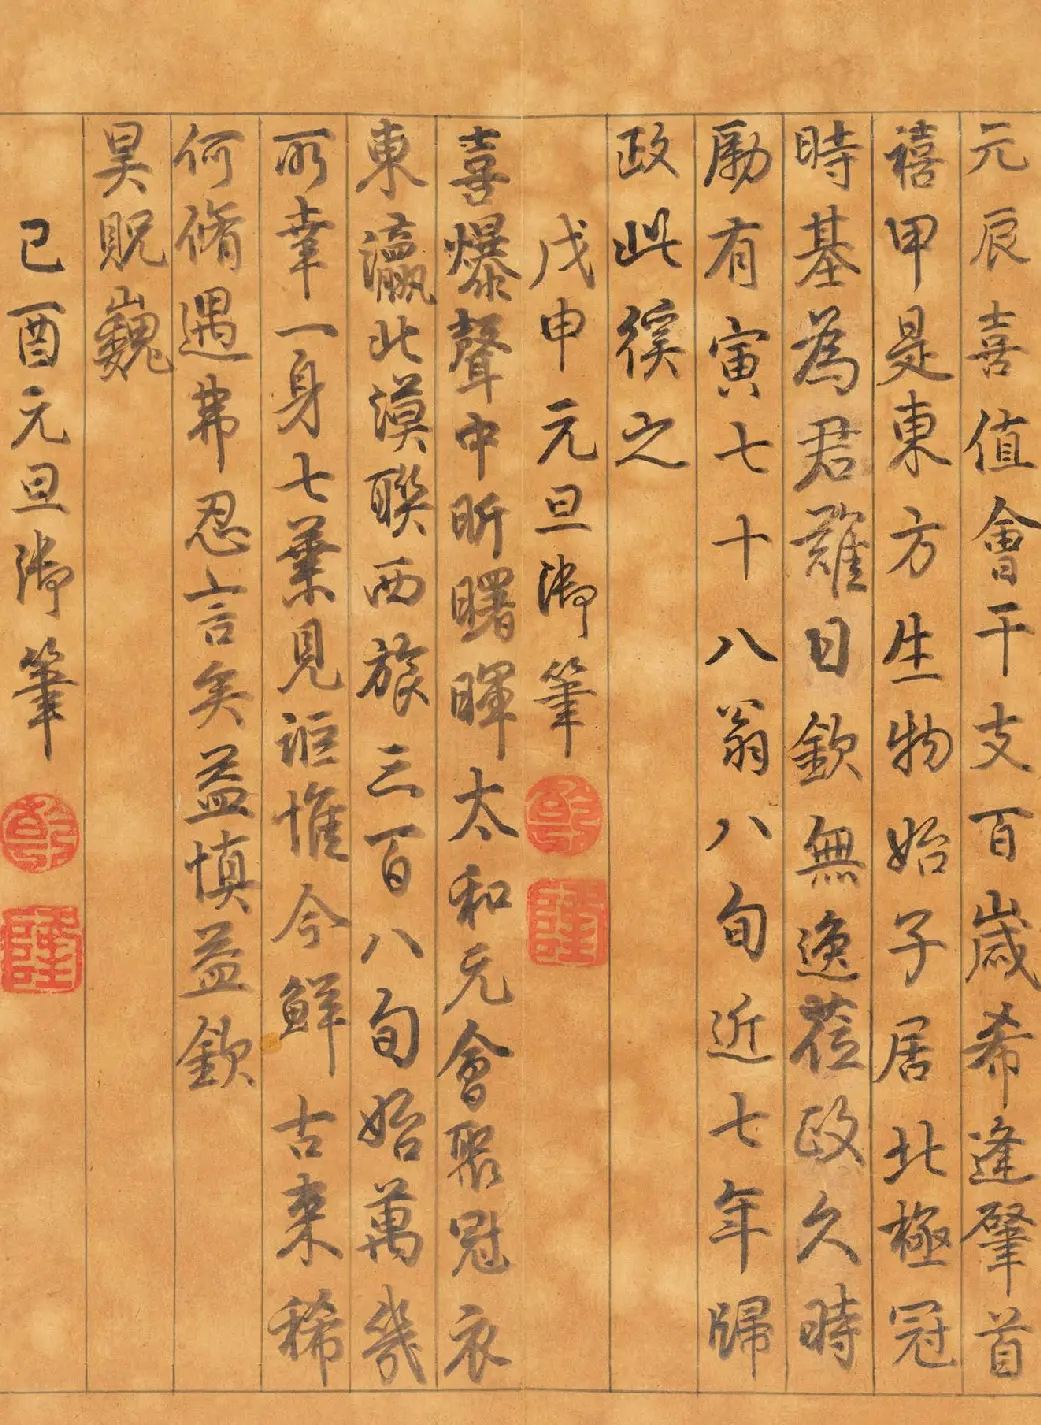 元辰喜值會干支百歲希逢肇首
禧甲是東方生物始子居北極冠
時基為君難日欽無逸蒞政久時
勵有寅七十八翁八旬近七年歸
政此徯之
戊申元旦御筆
乾
隆
喜爆聲中昕曙暉太和元會聚冠衣
東瀛北漠聯西旅三百八旬始萬幾
所幸一身七葉見詎惟今鮮古來稀
何脩遇弗忍言矣益慎益欽
昊貺巍
己酉元旦御筆
乾
隆